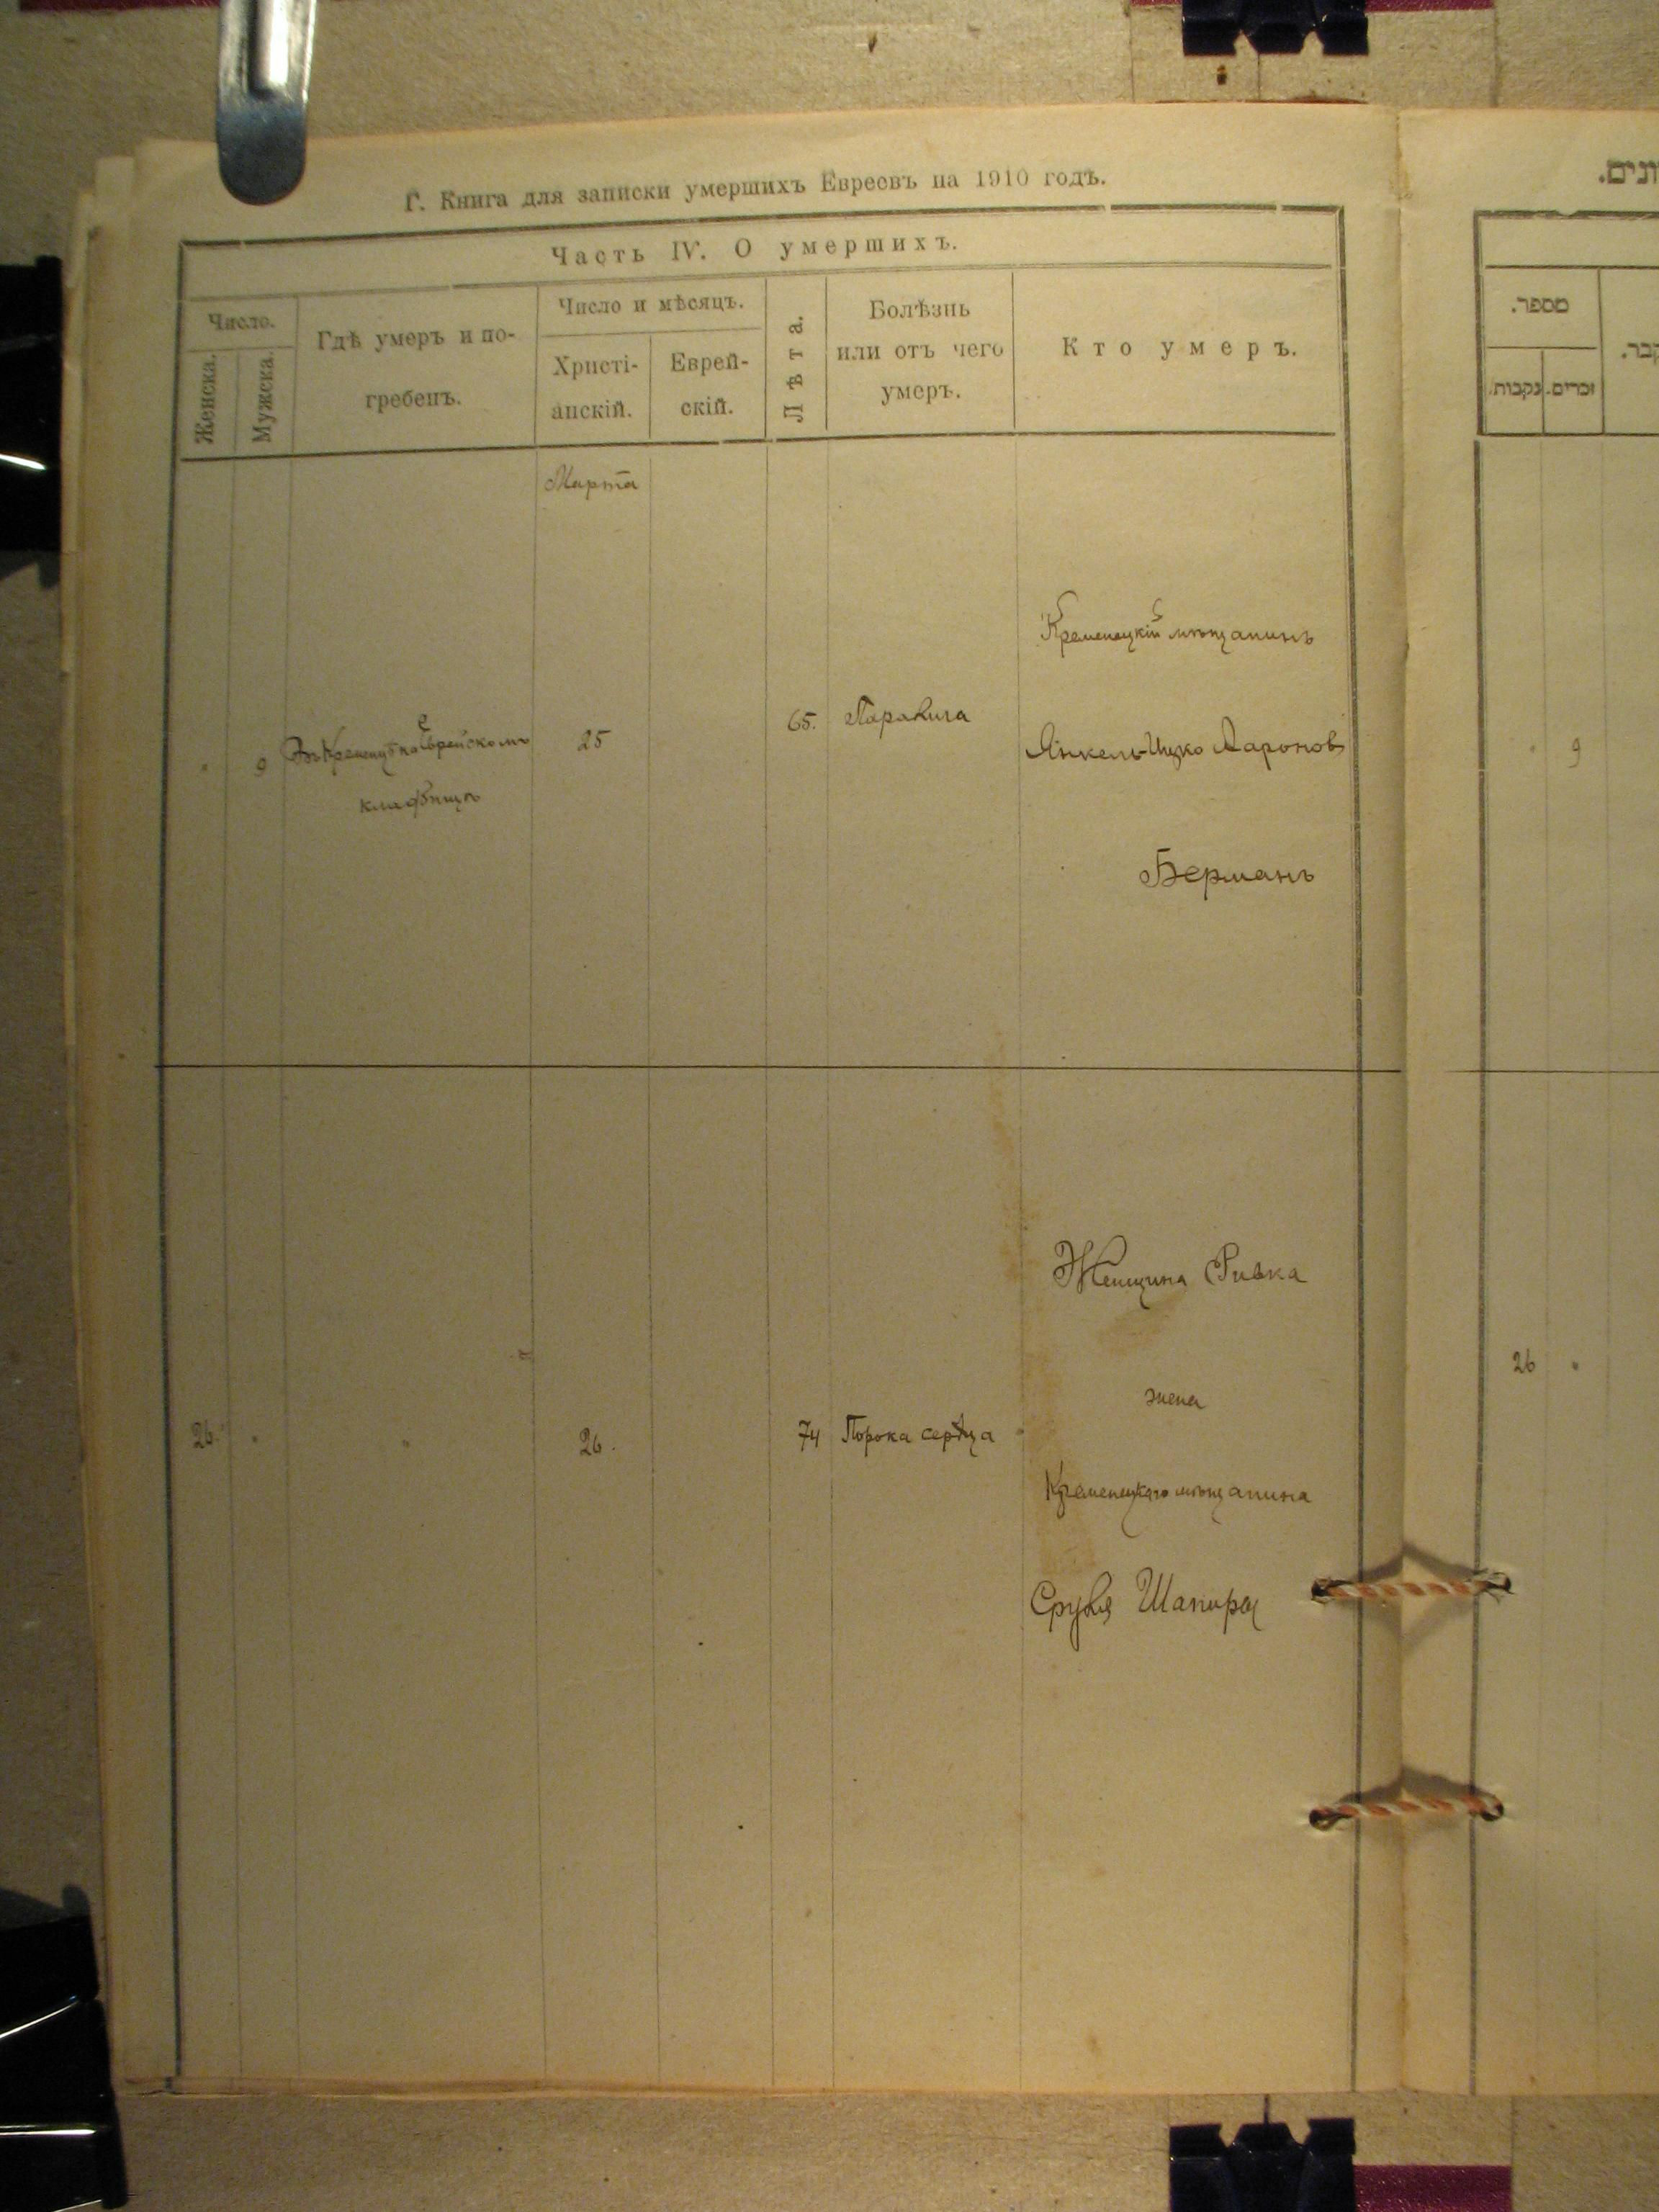 Г. Книга для записки умершихъ Евреевъ на 1910 годъ.
Часть IV. О умершихъ.
Число.
Женска.
Мужска.
Гдѣ умеръ и по-
гребенъ.
Число и мѣсяцъ.
Христі-
анскій.
Еврей-
скій.
Лѣта.
Болѣзнь
или отъ чего
умеръ.
Кто умеръ.
Марта
9
Еврейскомъ
кладбищѣ
25
65.
Кременецкій мѣщанинъ
Янкель-Ицко Ааронов
Берманъ
26.
26.
74
Порока сердца
Женщина Ривка
жена
Кременецкаго мѣщанина
Сруля Шапира
מספר.
נקבות.
זכרים.
9
26